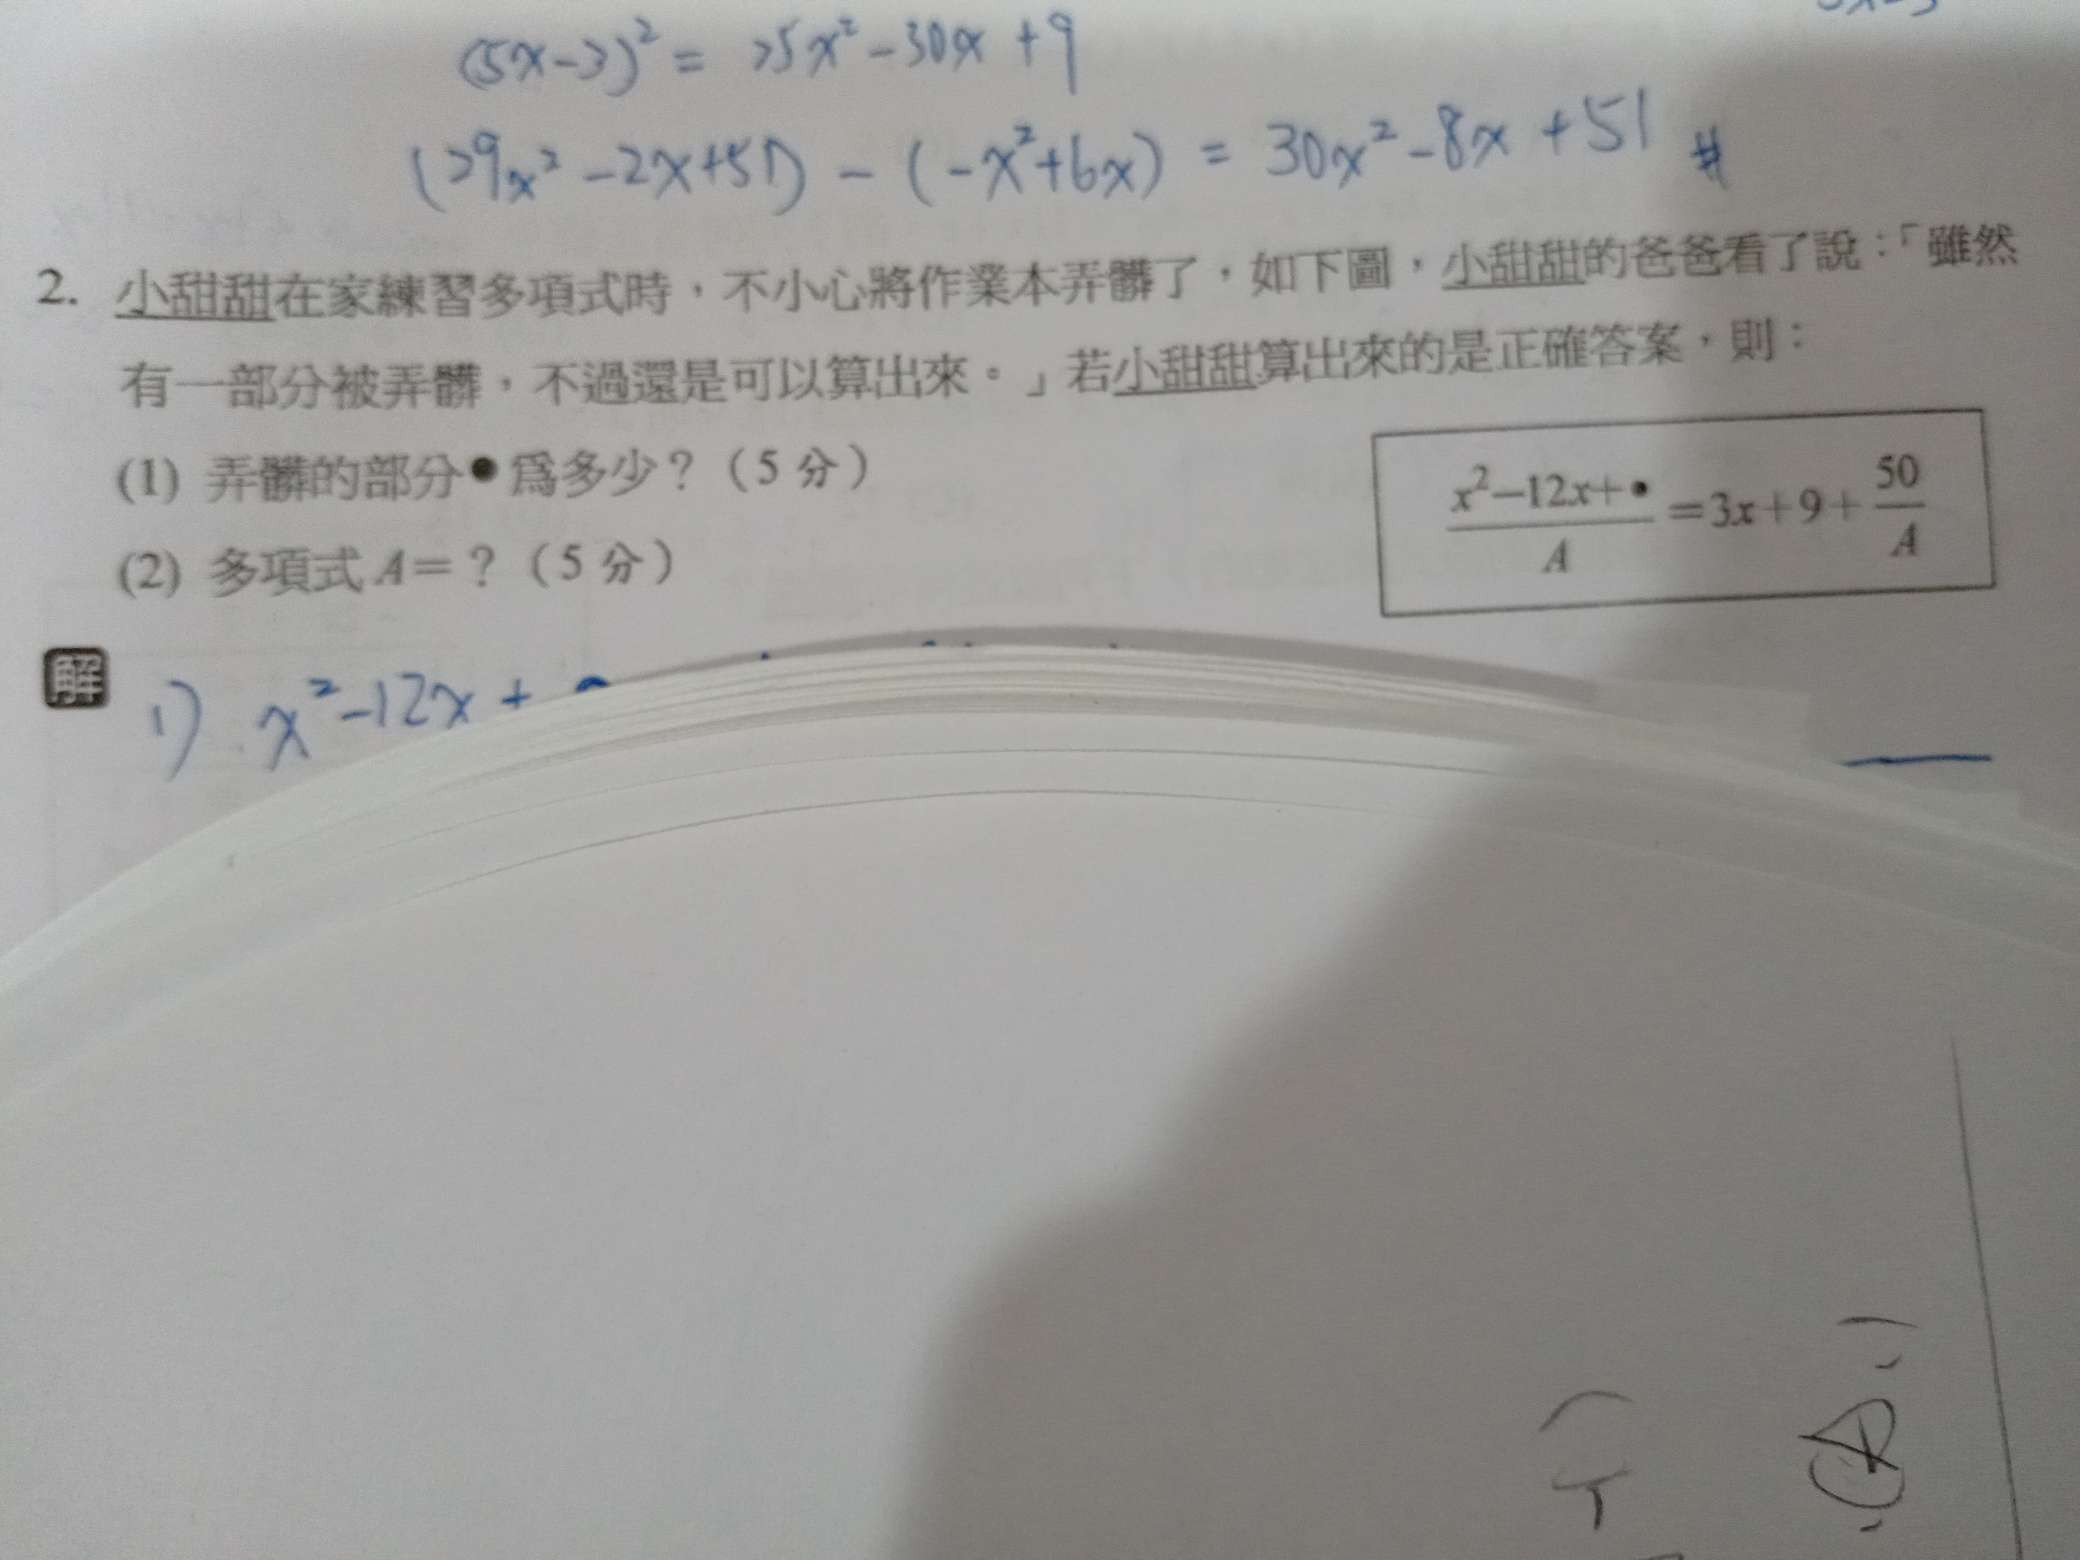 (5x-3)² = 25x² - 30x + 9
(29x² - 2x + 51) - (-x² + 6x) = 30x² - 8x + 51 #
2. 小甜甜在家練習多項式時，不小心將作業本弄髒了，如下圖，小甜甜的爸爸看了說：「雖然
有一部分被弄髒，不過還是可以算出來。」若小甜甜算出來的是正確答案，則：
(1) 弄髒的部分●為多少？（5 分）
(2) 多項式 A＝？（5 分）
(x²－12x＋●)/A ＝3x＋9＋ 50/A
解
1) x² - 12x +